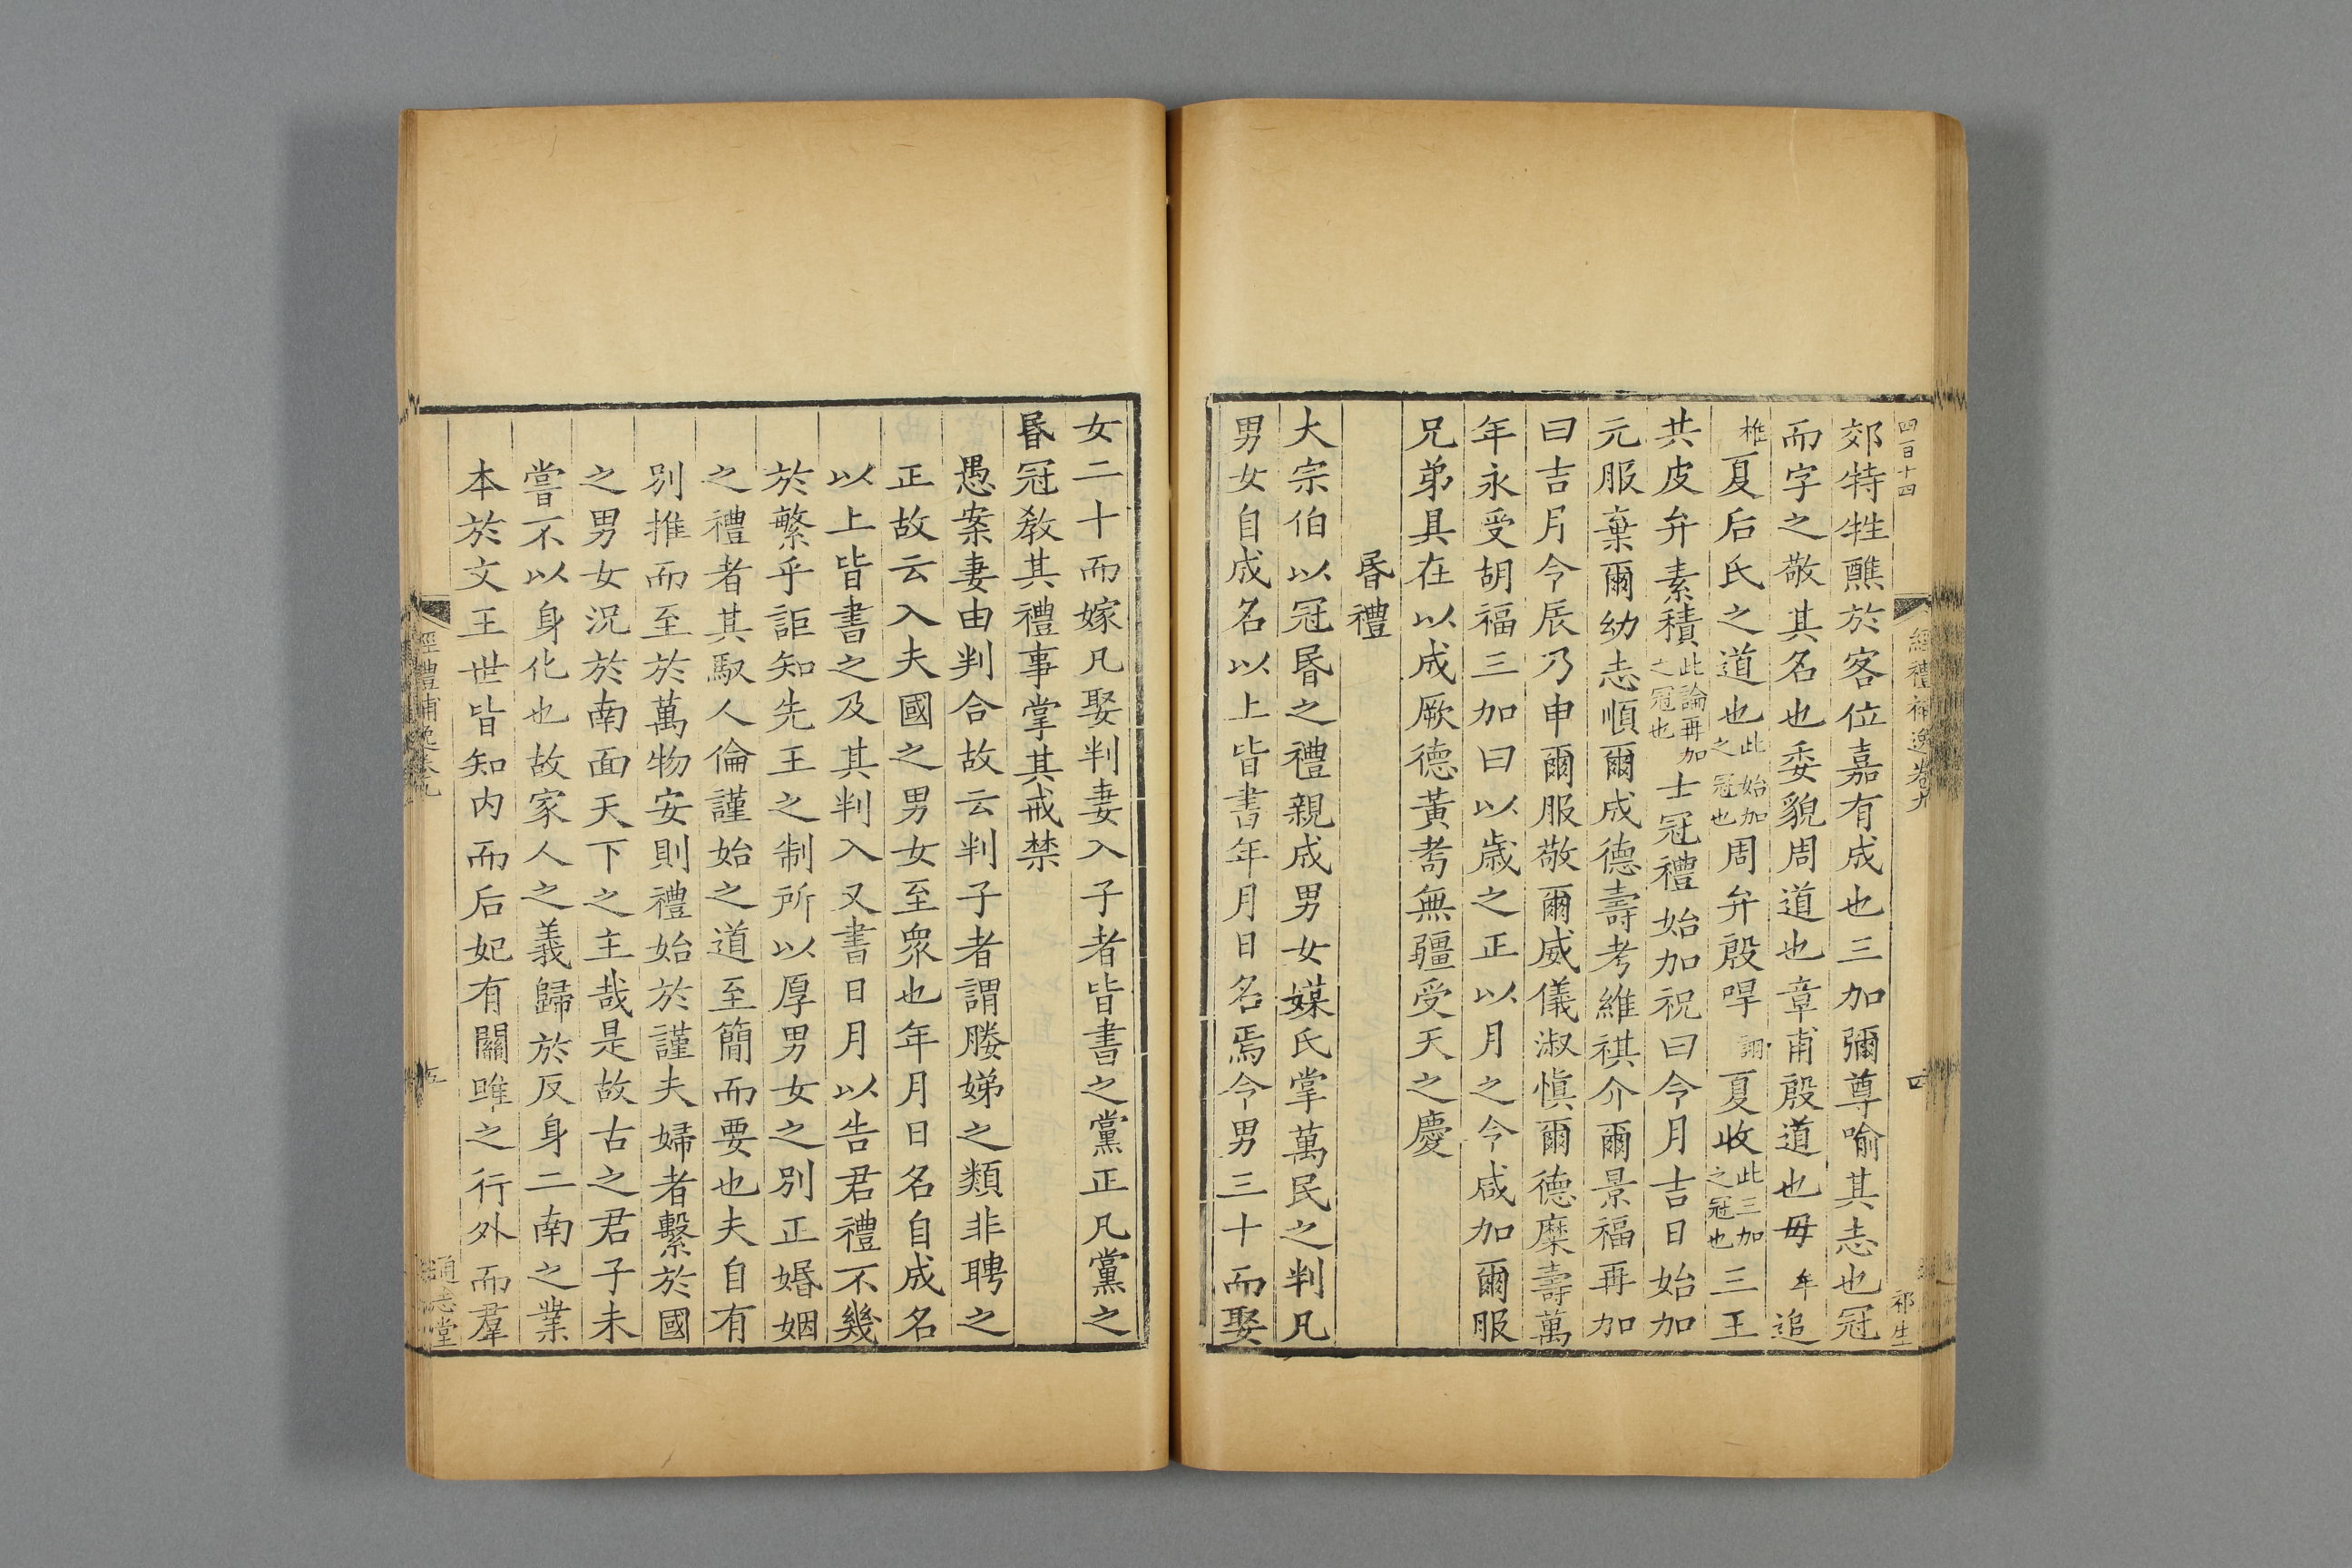 四百十四
經禮補逸卷九
四
祁生
郊特牲醮於客位嘉有成也三加彌尊喻其志也冠
而字之敬其名也委貌周道也章甫殷道也毋牟追
椎夏后氏之道也此始加之冠也周弁殷哻詡夏收此三加之冠也三王
共皮弁素積此論再加之冠也士冠禮始加祝曰令月吉日始加
元服棄爾幼志順爾成德壽考維祺介爾景福再加
曰吉月令辰乃申爾服敬爾威儀淑慎爾德麋壽萬
年永受胡福三加曰以歲之正以月之令咸加爾服
兄弟具在以成厥德黃耇無疆受天之慶
昬禮
大宗伯以冠昬之禮親成男女媒氏掌萬民之判凡
男女自成名以上皆書年月日名焉令男三十而娶
女二十而嫁凡娶判妻入子者皆書之黨正凡黨之
昬冠敎其禮事掌其戒禁
愚案妻由判合故云判子者謂媵娣之類非聘之
正故云入夫國之男女至衆也年月日名自成名
以上皆書之及其判入又書日月以告君禮不幾
於繁乎詎知先王之制所以厚男女之別正婚姻
之禮者其馭人倫謹始之道至簡而要也夫自有
別推而至於萬物安則禮始於謹夫婦者繫於國
之男女況於南面天下之主哉是故古之君子未
嘗不以身化也故家人之義歸於反身二南之業
本於文王世皆知內而后妃有關雎之行外而羣
經禮補逸卷九
五
通志堂